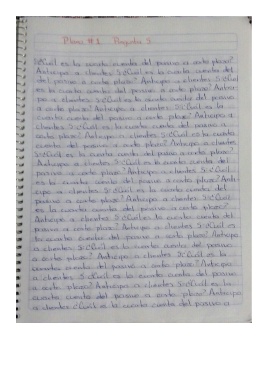 Plana # 1 Pregunta 5
5: ¿Cuál es la cuarta cuenta del pasivo a corto plazo?
Anticipo a clientes 5: ¿Cuál es la cuarta cuenta del
del pasivo a corto plazo? Anticipo a clientes 5: ¿Cuál
es la cuarta cuenta del pasivo a corto plazo? Antici-
po a clientes 5: ¿Cuál es la cuarta cuenta del pasivo
a corto plazo? Anticipo a clientes 5: ¿Cuál es la
cuarta cuenta del pasivo a corto plazo? Anticipo a
clientes 5: ¿Cuál es la cuarta cuenta del pasivo a
corto plazo? Anticipo a clientes 5: ¿Cuál es la cuarta
cuenta del pasivo a corto plazo? Anticipo a clientes
5: ¿Cuál es la cuarta cuenta del pasivo a corto plazo?
Anticipo a clientes 5: ¿Cuál es la cuarta cuenta del
pasivo a corto plazo? Anticipo a clientes 5: ¿Cuál
es la cuarta cuenta del pasivo a corto plazo? Anti-
cipo a clientes 5: ¿Cuál es la cuarta cuenta del
pasivo a corto plazo? Anticipo a clientes 5: ¿Cuál
es la cuarta cuenta del pasivo a corto plazo?
Anticipo a clientes 5: ¿Cuál es la cuarta cuenta del
pasivo a corto plazo? Anticipo a clientes 5: ¿Cuál es
la cuarta cuenta del pasivo a corto plazo? Anticipo
a clientes 5: ¿Cuál es la cuarta cuenta del pasivo
a corto plazo? Anticipo a clientes 5: ¿Cuál es la
cuarta cuenta del pasivo a corto plazo? Anticipo
a clientes 5: ¿Cuál es la cuarta cuenta del pasivo
a corto plazo? Anticipo a clientes 5: ¿Cuál es la
cuarta cuenta del pasivo a corto plazo? Anticipo
a clientes ¿Cuál es la cuarta cuenta del pasivo a